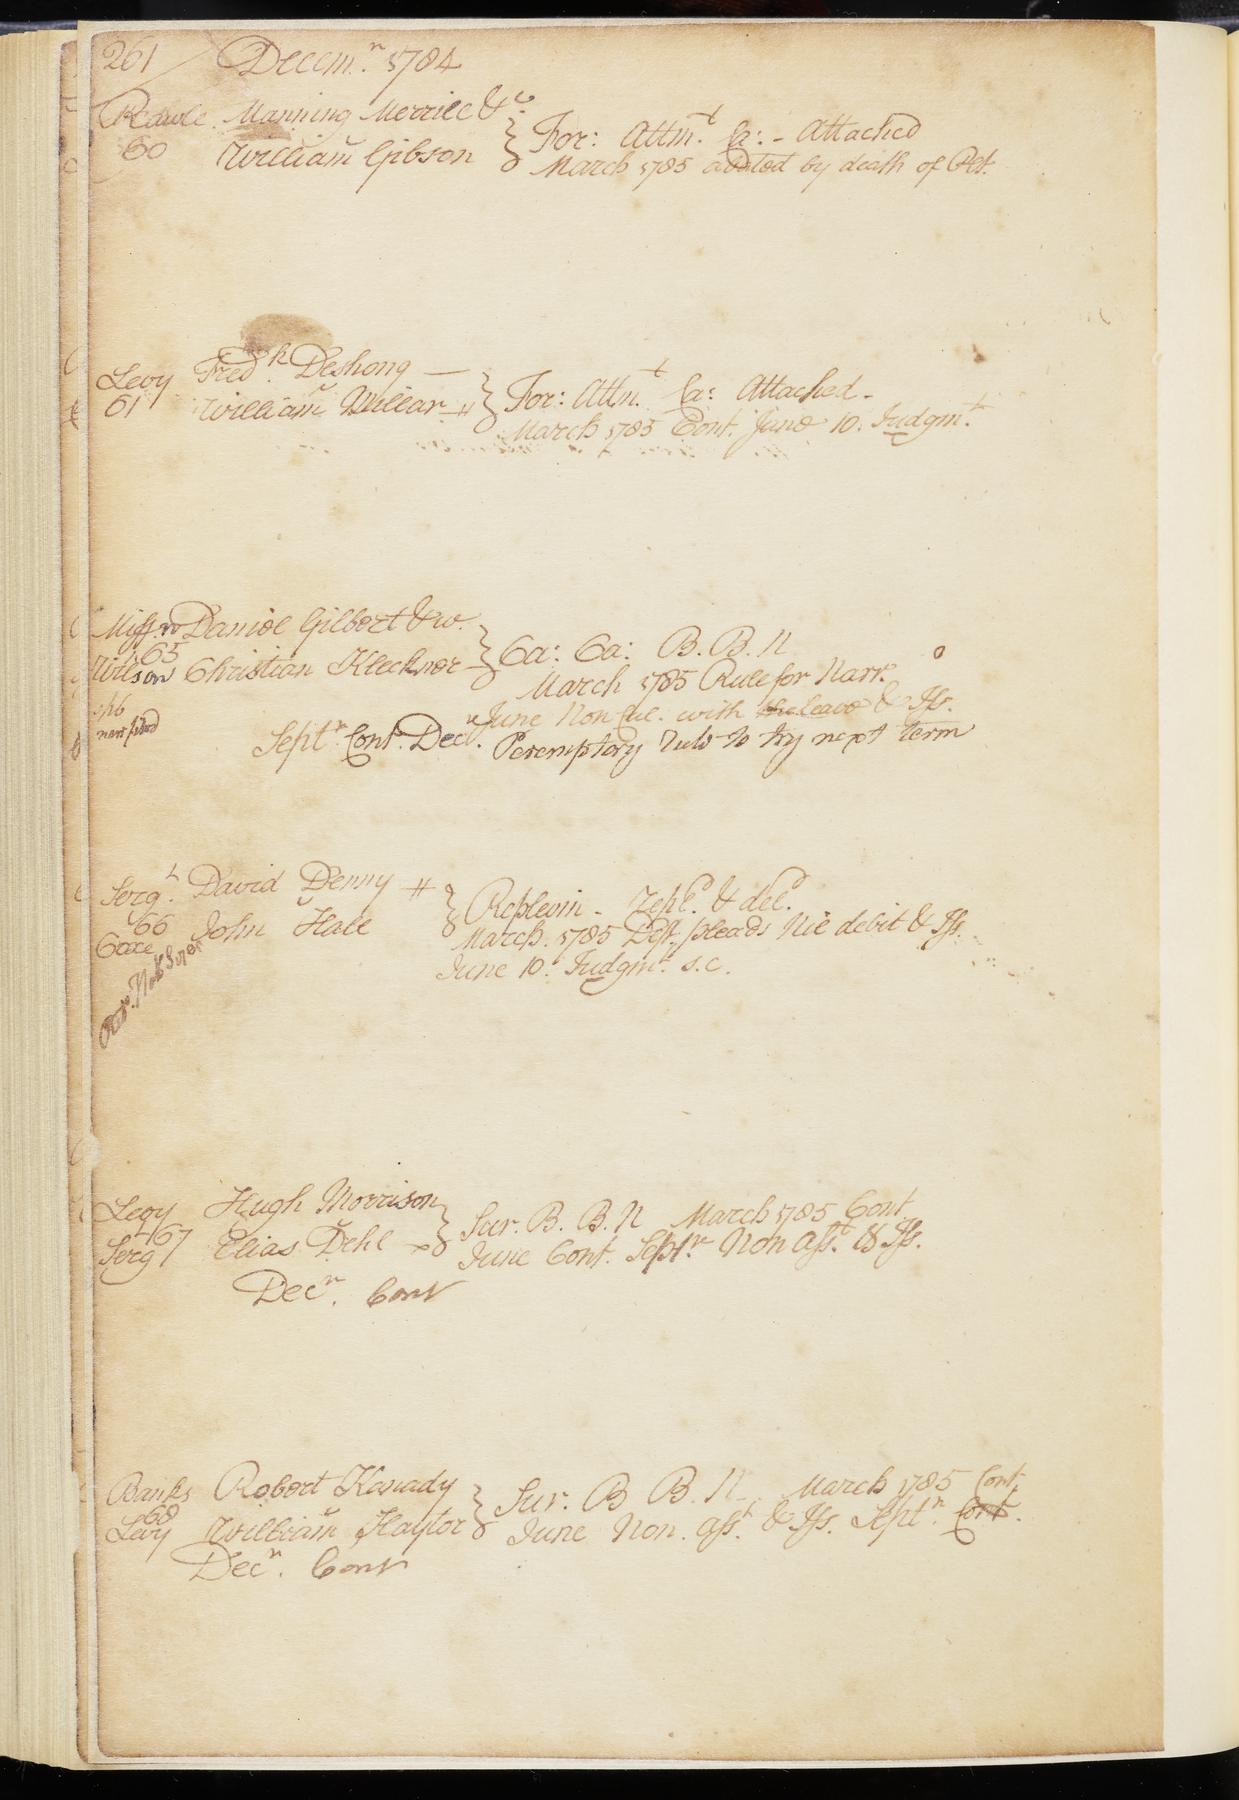 261 Decem.r 1784
Rawle Manning Merrill &c.
60 William Gibson } For: Attm.t Ca: - Attached
March 1785 abated by death of Plt.
Levy Fred.k Deshong —
61 William Millar } For: Attm.t Ca: Attached -
March 1785 Cont. June 10. Judgm.t
Miff.n Daniel Gilbert & w.
65
Wilson Christian Kleckner } Ca: Ca: B. B. N
March 1785 Rule for Narr
narr filed
June Non Cul. with leave & Iss.
Sept.r Cont. Dec.r Peremptory rule to try next term
Serg.t David Denny
66 John Hale } Replevin - repl.d & del.d
Coxe
March. 1785 Deft. pleads Nil debit & Iss.
June 10. Judgm.t s.c.
Levy Hugh Morrison
67
Serg Elias Dehl } Sur. B. B. N March 1785 Cont
June Cont. Sept.r Non Ass.t & Iss.
Dec.r Cont
Banks Robert Kanady
68
Levy William Haytor } Sur: B B. N March 1785 Cont,
June Non. ass.t & Iss. Sept.r Cont.
Dec.r Cont